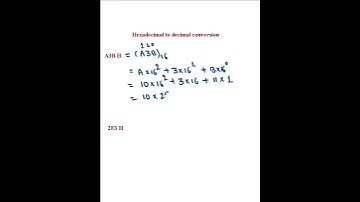 Hexadecimal to decimal conversion
2 1 0
A3B H = (A3B)16
= A×16² + 3×16¹ + B×16⁰
= 10×16² + 3×16 + 11×1
= 10×25
2F3 H